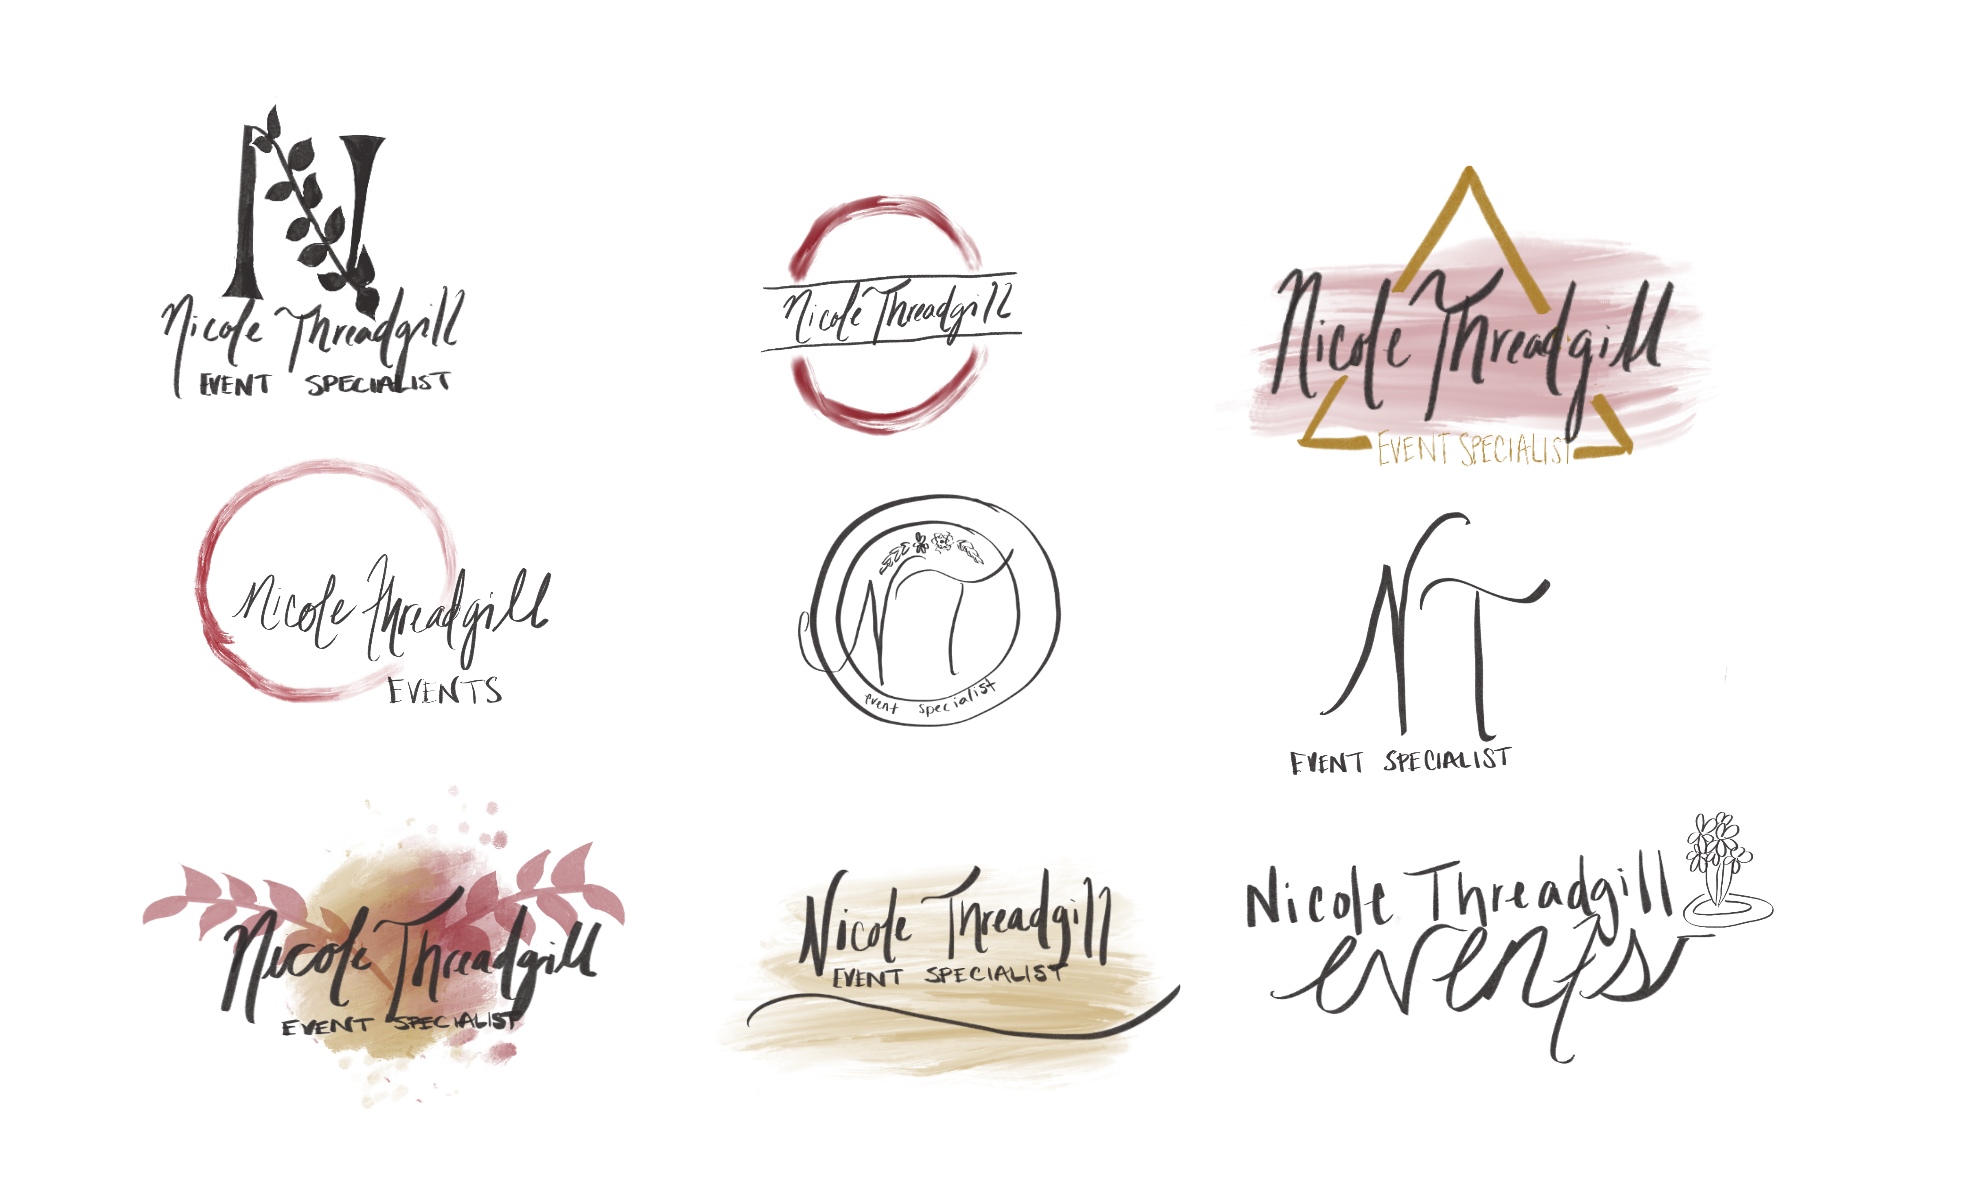 Nicole Threadgill
EVENT SPECIALIST
Nicole Threadgill
Nicole Threadgill
EVENT SPECIALIST
Nicole Threadgill
EVENTS
NT
event specialist
NT
EVENT SPECIALIST
Nicole Threadgill
EVENT SPECIALIST
Nicole Threadgill
EVENT SPECIALIST
Nicole Threadgill
events